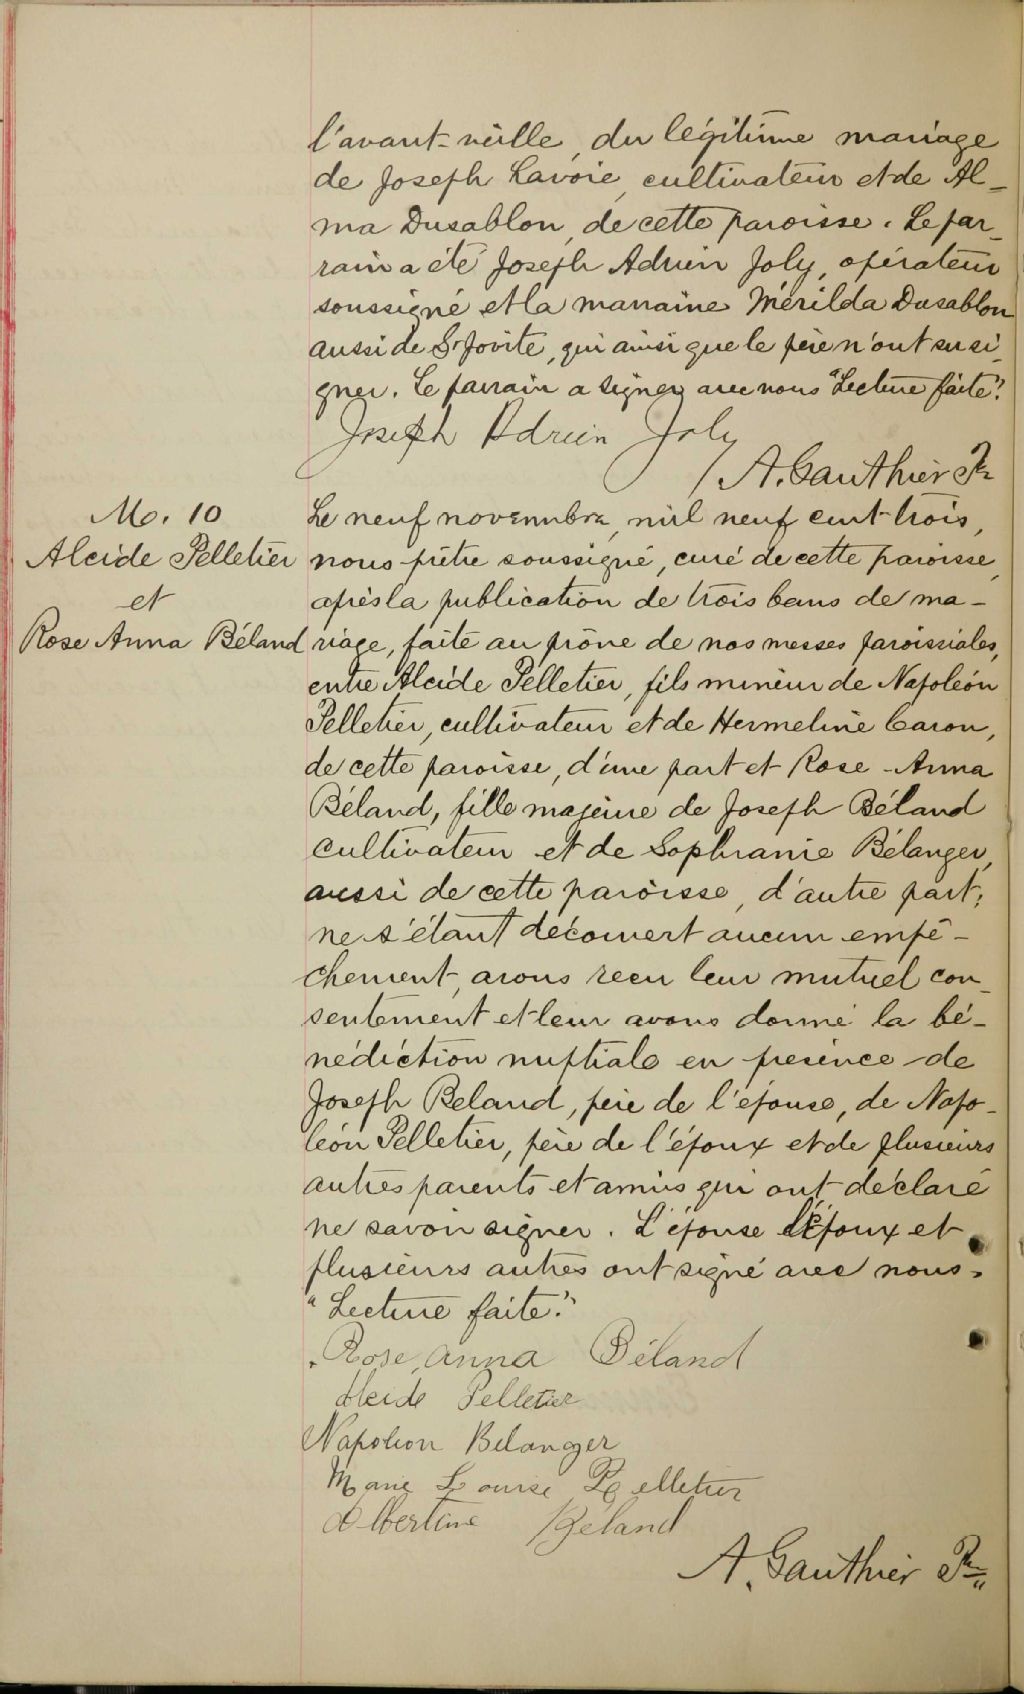 l'avant-veille, du légitime mariage
de Joseph Lavoie, cultivateur et de Al-
ma Dusablon, de cette paroisse. Le par-
rain a été Joseph Adrien Joly, opérateur
soussigné et la marraine Mérilda Dusablon
aussi de St Jovite, qui ainsi que le père n'ont su si-
gner. Le parrain a signer avec nous "Lecture faite."
Joseph Adrien Joly
A. Gauthier Ptr
M. 10
Alcide Pelletier
et
Rose Anna Béland
Le neuf novembre, mil neuf cent trois,
nous prêtre soussigné, curé de cette paroisse,
après la publication de trois bans de ma-
riage, faite au prône de nos messes paroissiales,
entre Alcide Pelletier, fils mineur de Napoléon
Pelletier, cultivateur et de Hermeline Caron,
de cette paroisse, d'une part et Rose-Anna
Béland, fille majeure de Joseph Béland
cultivateur et de Sophranie Bélanger,
aussi de cette paroisse, d'autre part;
ne s'étant découvert aucun empê-
chement, avons recu leur mutuel con-
sentement et leur avons donné la bé-
nédiction nuptiale en presence de
Joseph Beland, père de l'épouse, de Napo-
léon Pelletier, père de l'époux et de plusieurs
autres parents et amis qui ont déclaré
ne savoir signer. L'épouse l'époux et
plusieurs autres ont signé avec nous.
"Lecture faite."
Rose, anna Béland
Alcide Pelletier
Napoleon Belanger
Marie Louise Pelletier
Albertine Béland
A. Gauthier Ptr